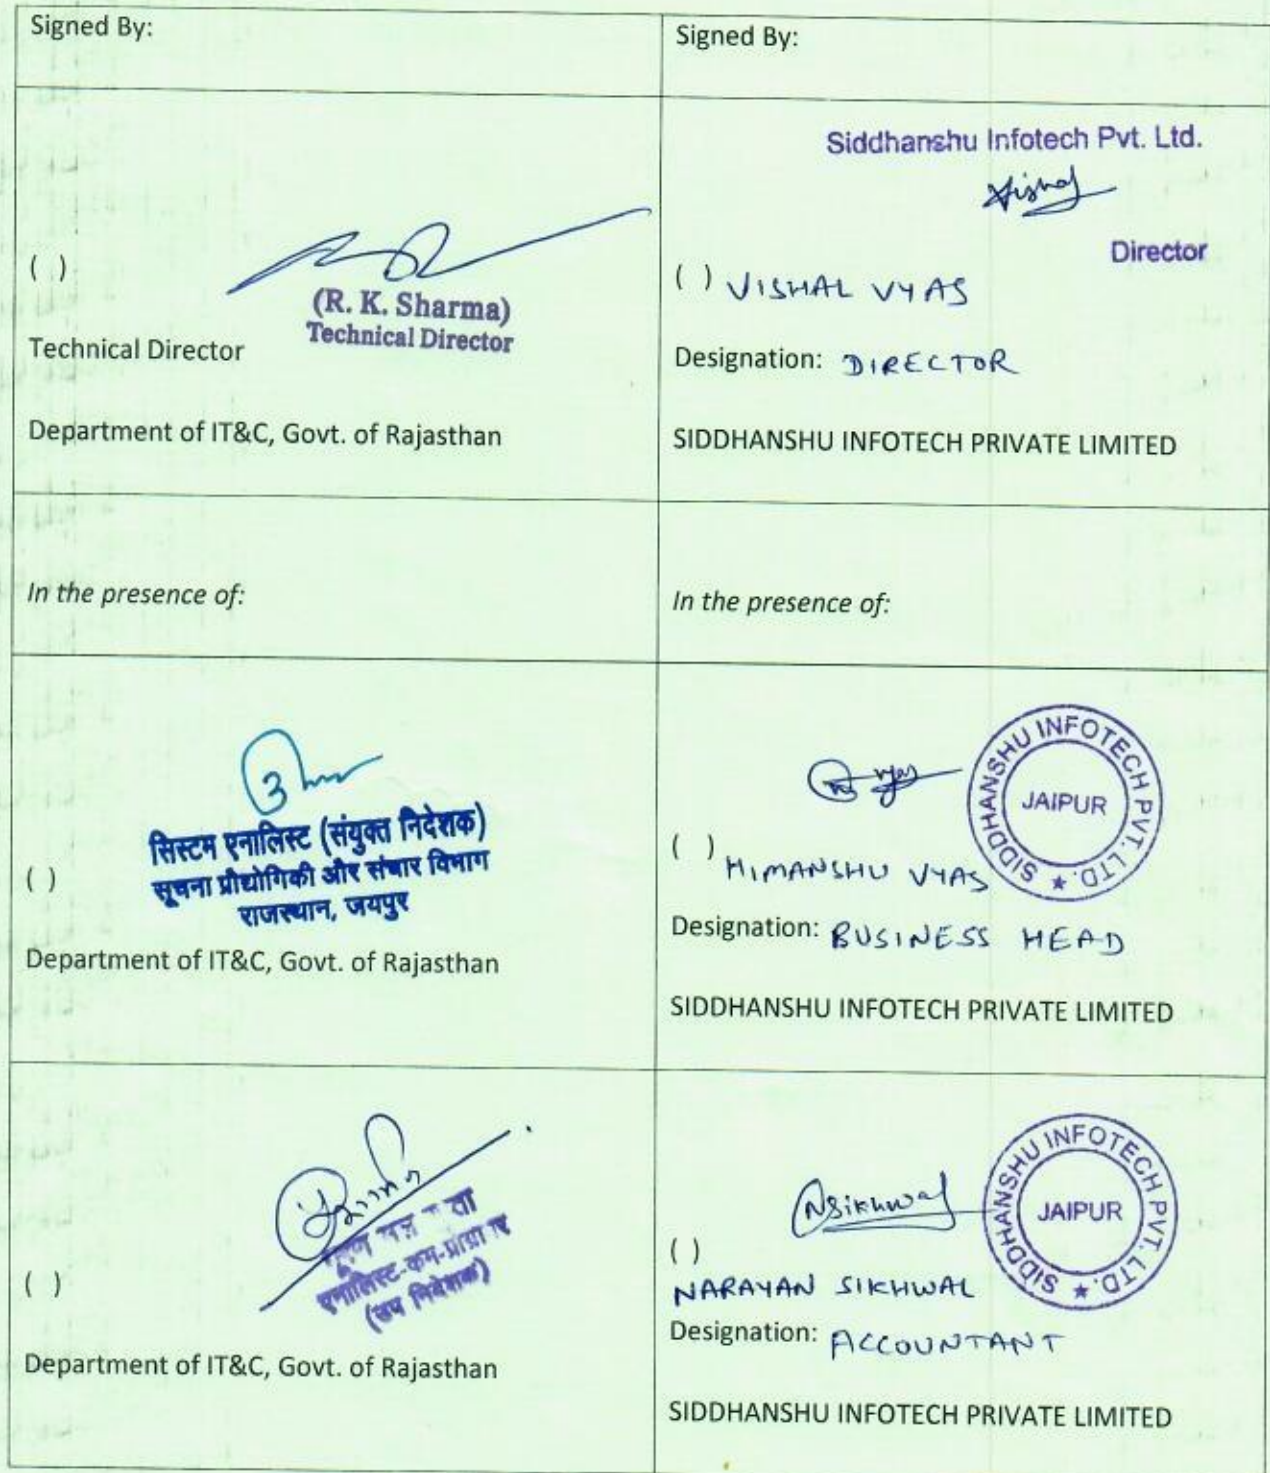 Signed By:
Signed By:
( )
(R. K. Sharma)
Technical Director
Technical Director
Department of IT&C, Govt. of Rajasthan
Siddhanshu Infotech Pvt. Ltd.
Vishal
Director
( ) VISHAL VYAS
Designation: DIRECTOR
SIDDHANSHU INFOTECH PRIVATE LIMITED
In the presence of:
In the presence of:
सिस्टम एनालिस्ट (संयुक्त निदेशक)
सूचना प्रौद्योगिकी और संचार विभाग
राजस्थान, जयपुर
( )
Department of IT&C, Govt. of Rajasthan
SIDDHANSHU INFOTECH PVT. LTD. ★
JAIPUR
( ) HIMANSHU VYAS
Designation: BUSINESS HEAD
SIDDHANSHU INFOTECH PRIVATE LIMITED
एनालिस्ट-कम-
(उप निदेशक)
( )
Department of IT&C, Govt. of Rajasthan
NSikhwal
SIDDHANSHU INFOTECH PVT. LTD. ★
JAIPUR
( )
NARAYAN SIKHWAL
Designation: ACCOUNTANT
SIDDHANSHU INFOTECH PRIVATE LIMITED